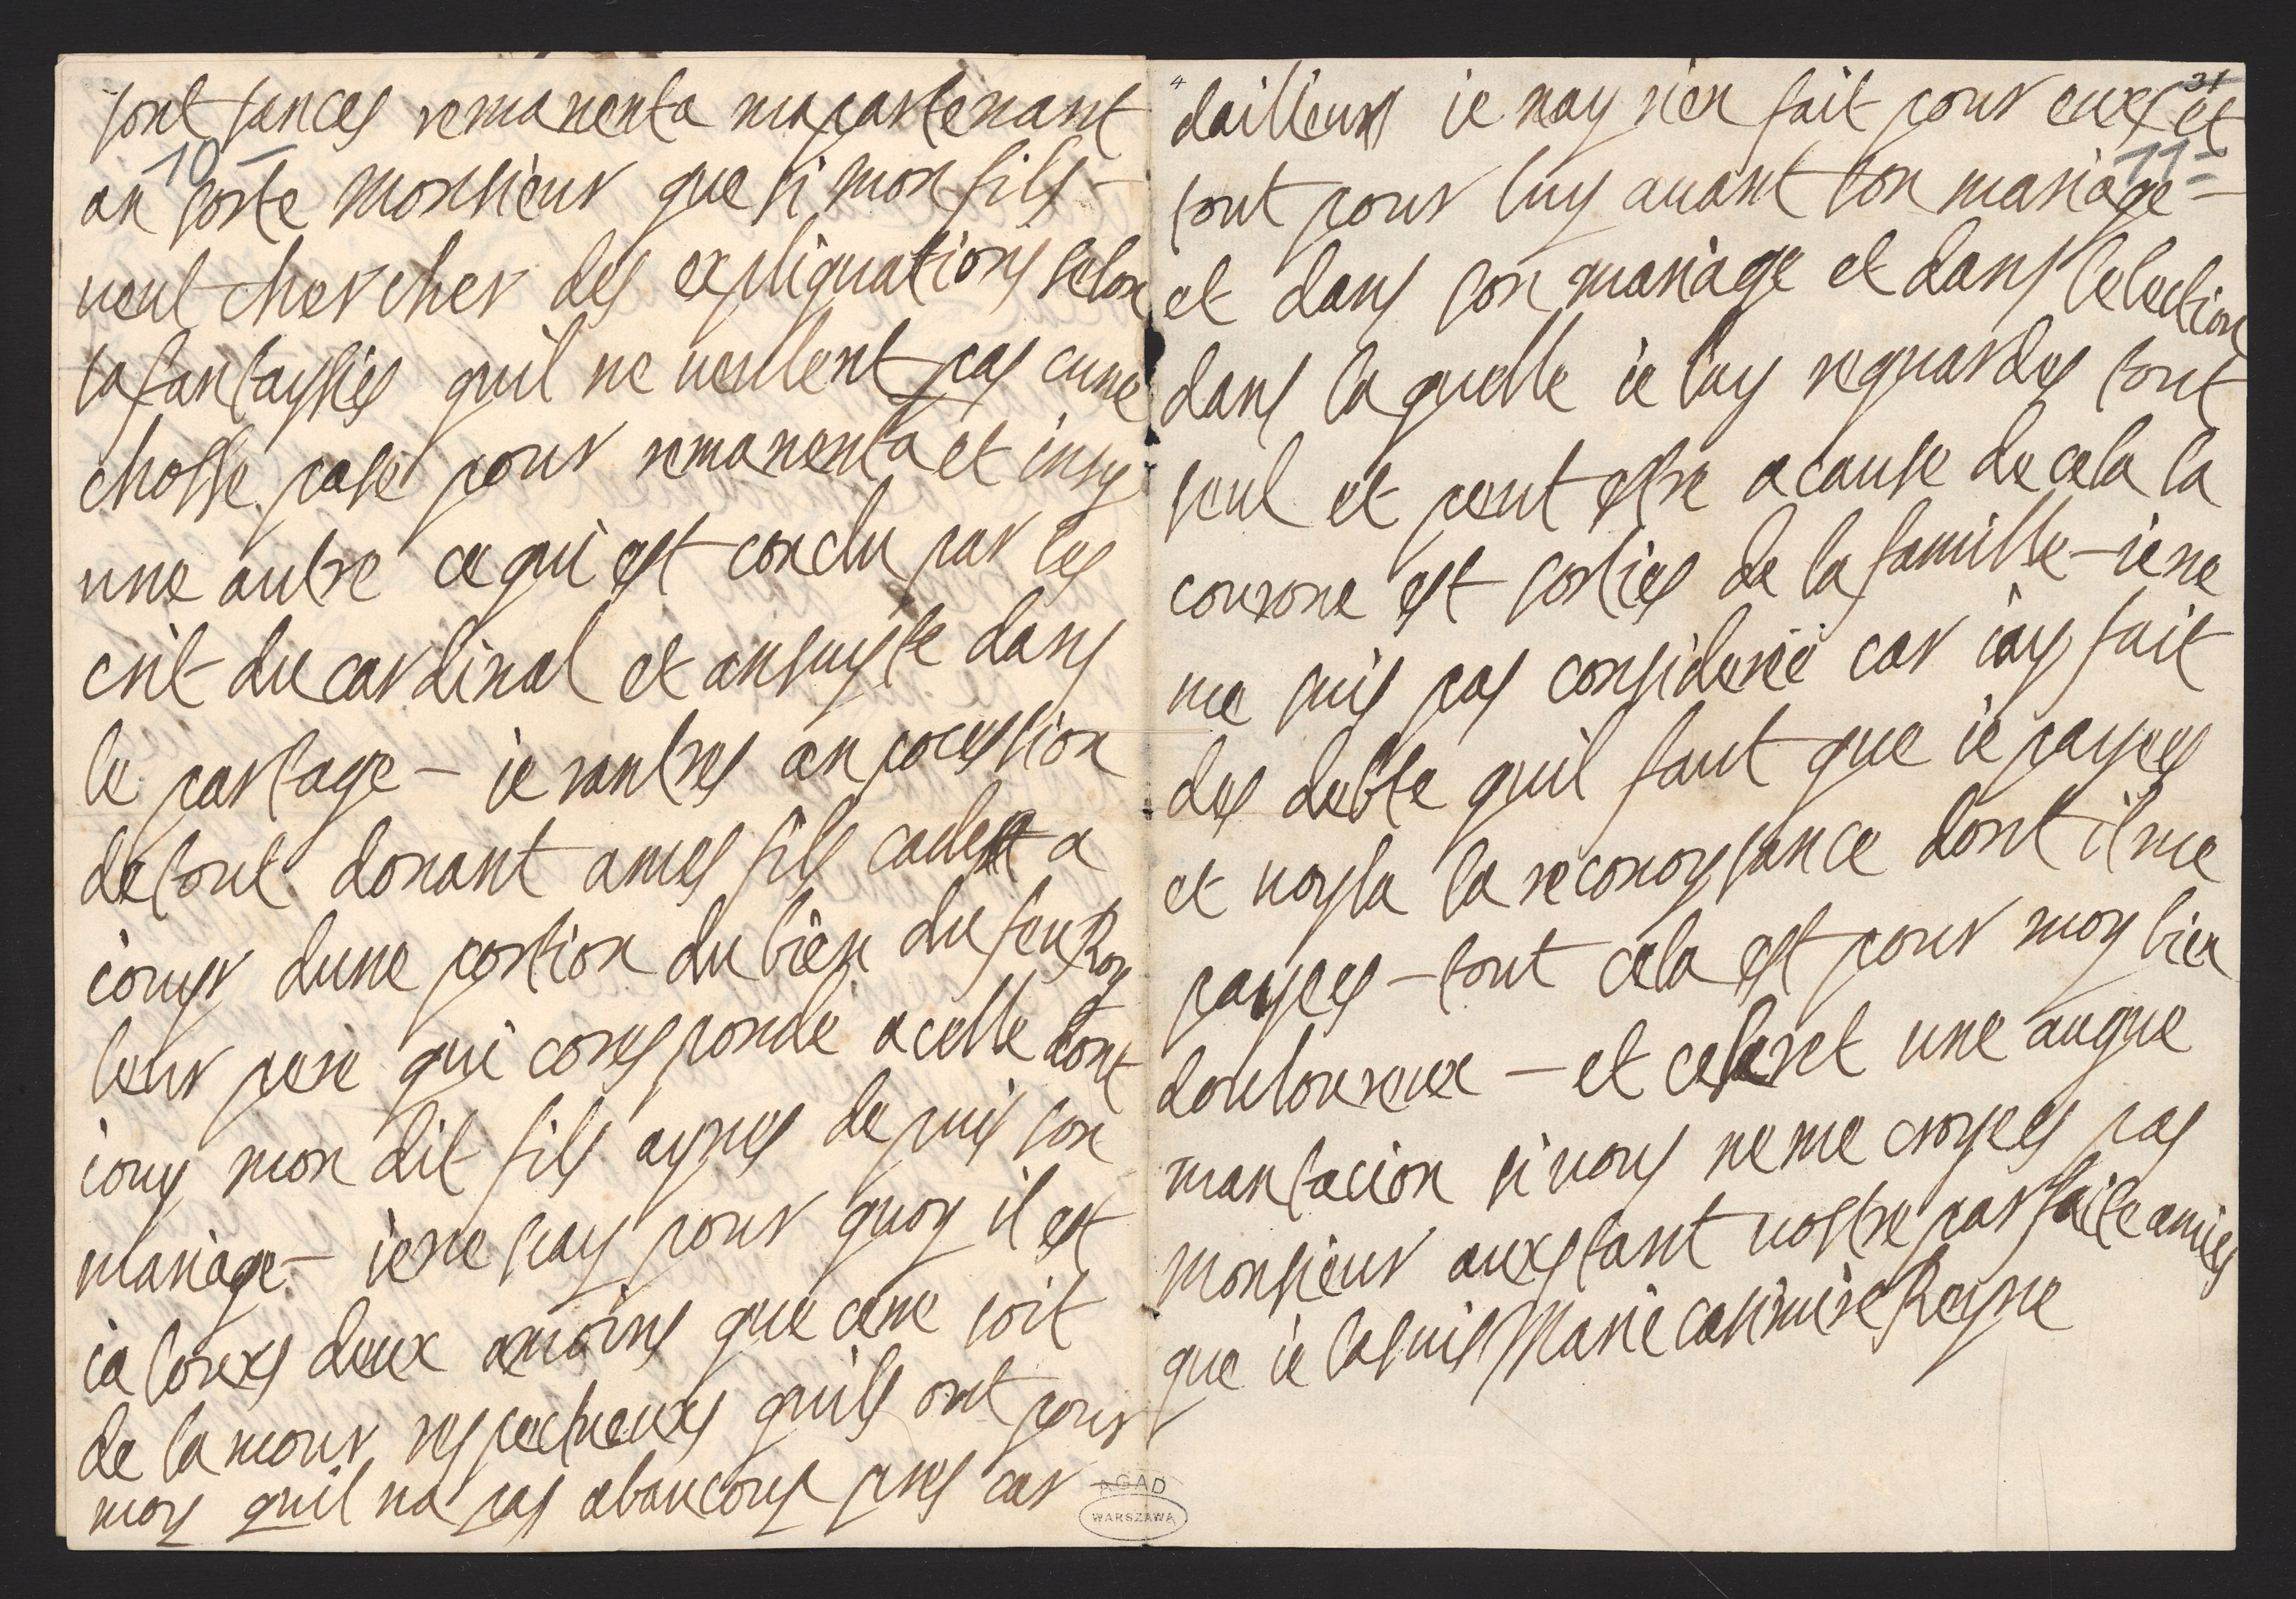 sont sances remanenta mapartenant
10 –
an sorte monsieur que si mon fils –
veut chercher des expliquations selon
sa fantaysies quil ne veulent pas cune
chosse pase pour remanenta et insy
une autre ce qui est conclu par les
crit du cardinal et ansuyste dans
le partage – ie rantres an pocession
de tout donant a mes fils cadest a
iouyr dune portion du bien du feu Roy
leur pere qui corespondé a celle dont
iouy mon dit fils aynes depuis son
mariage – ie ne say pour quoy il est
ialouxs deux amoins que cene soit
de lamour respectueuxs quils ont pour
moy quil na pas abaucoup pres car
AGAD
WARSZAWA
4
31
dailleurs ie nay rien fait pour eux et
11 =
tout pour luy avant son mariage –
et dans son mariage et dans lelection
dans laquelle ie luy reguardes tout
seul et peut estre acause de cela la
courone est sorties de la famille – ie ne
me suis pas considereé car iay fait
des debte quil faut que ie payees
et voyla la reconoysance dont il me
payees – tout cela est pour moy bien
douloureux – et ce seret une augue
mantacion si vous ne me croyees pas
monsieur auxstant vostre parfaite amies
que ie la suis Marie casimire Reyne